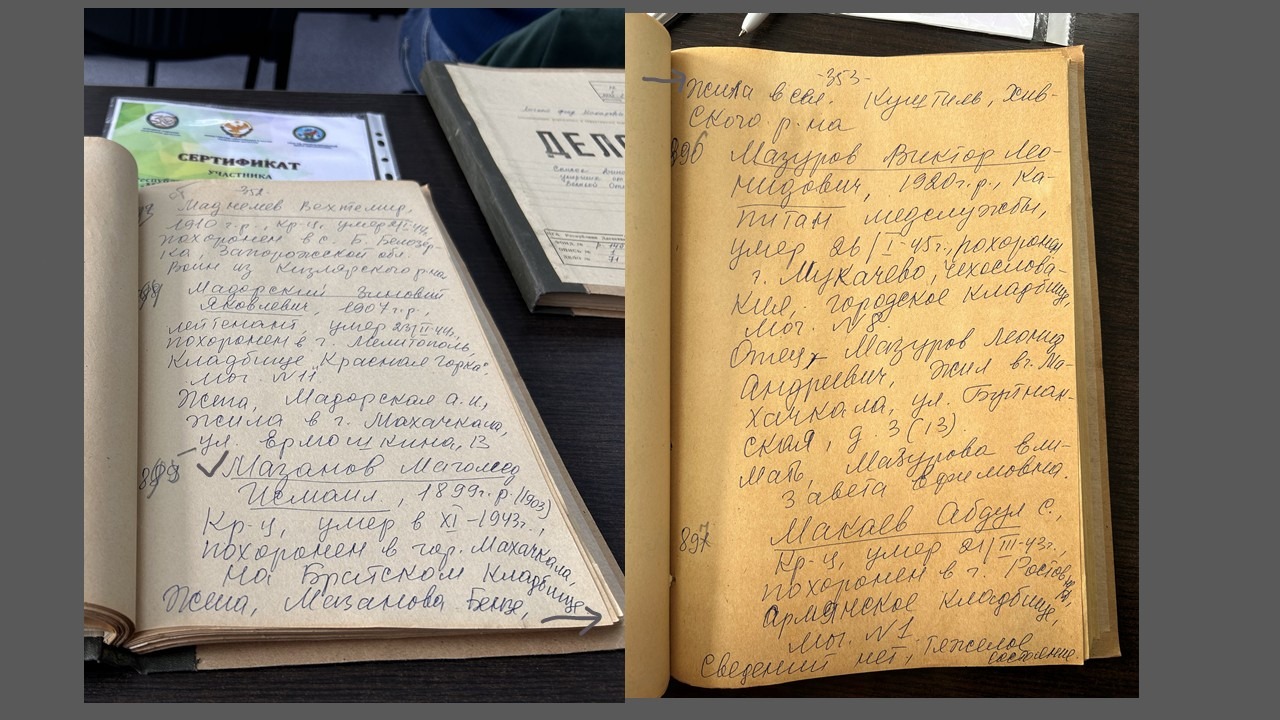 СЕРТИФИКАТ
УЧАСТНИКА
ДЕЛО
-352-
Вехтемир,
1910 г.р., кр-ц, умер
похоронен в с. Б. Белозер-
ка, Запорожской обл.
Воин из Кизлярского р-на
Мадорский Зиновий
Яковлевич, 1907 г.р.,
лейтенант, умер 23/II-44г.,
похоронен в г. Мелитополь,
Кладбище "Красная горка".
мог. N 11.
Жена, Мадорская А.И,
жила в г. Махачкала,
ул. Ермошкина, 13
Мазанов Магомед
Исмаил., 1899г.р. (1903)
Кр-ц, умер в XI-1943г.,
похоронен в гор. Махачкала,
на Братском Кладбище
Жена, Мазанова
-353-
жила в сел. Хив-
ского р-на
896 Мазуров Виктор Лео-
нидович, 1920г.р., ка-
питан медслужбы,
умер 26/I-45г., похоронен
г. Мукачево, Чехослова-
кия, городское кладбище
мог. N 8.
Отец, Мазуров Леонид
Андреевич, жил в г. Ма-
хачкала, ул. Буйнак-
ская, д. 3 (13).
Мать, Мазурова Ели-
завета Ефимовна.
897 Макаев Абдул С.,
Кр-ц, умер 21/III-43г.,
похоронен в г. Ростов
Армянское кладбище,
мог. N 1
Сведений нет, тяжелое
состояние